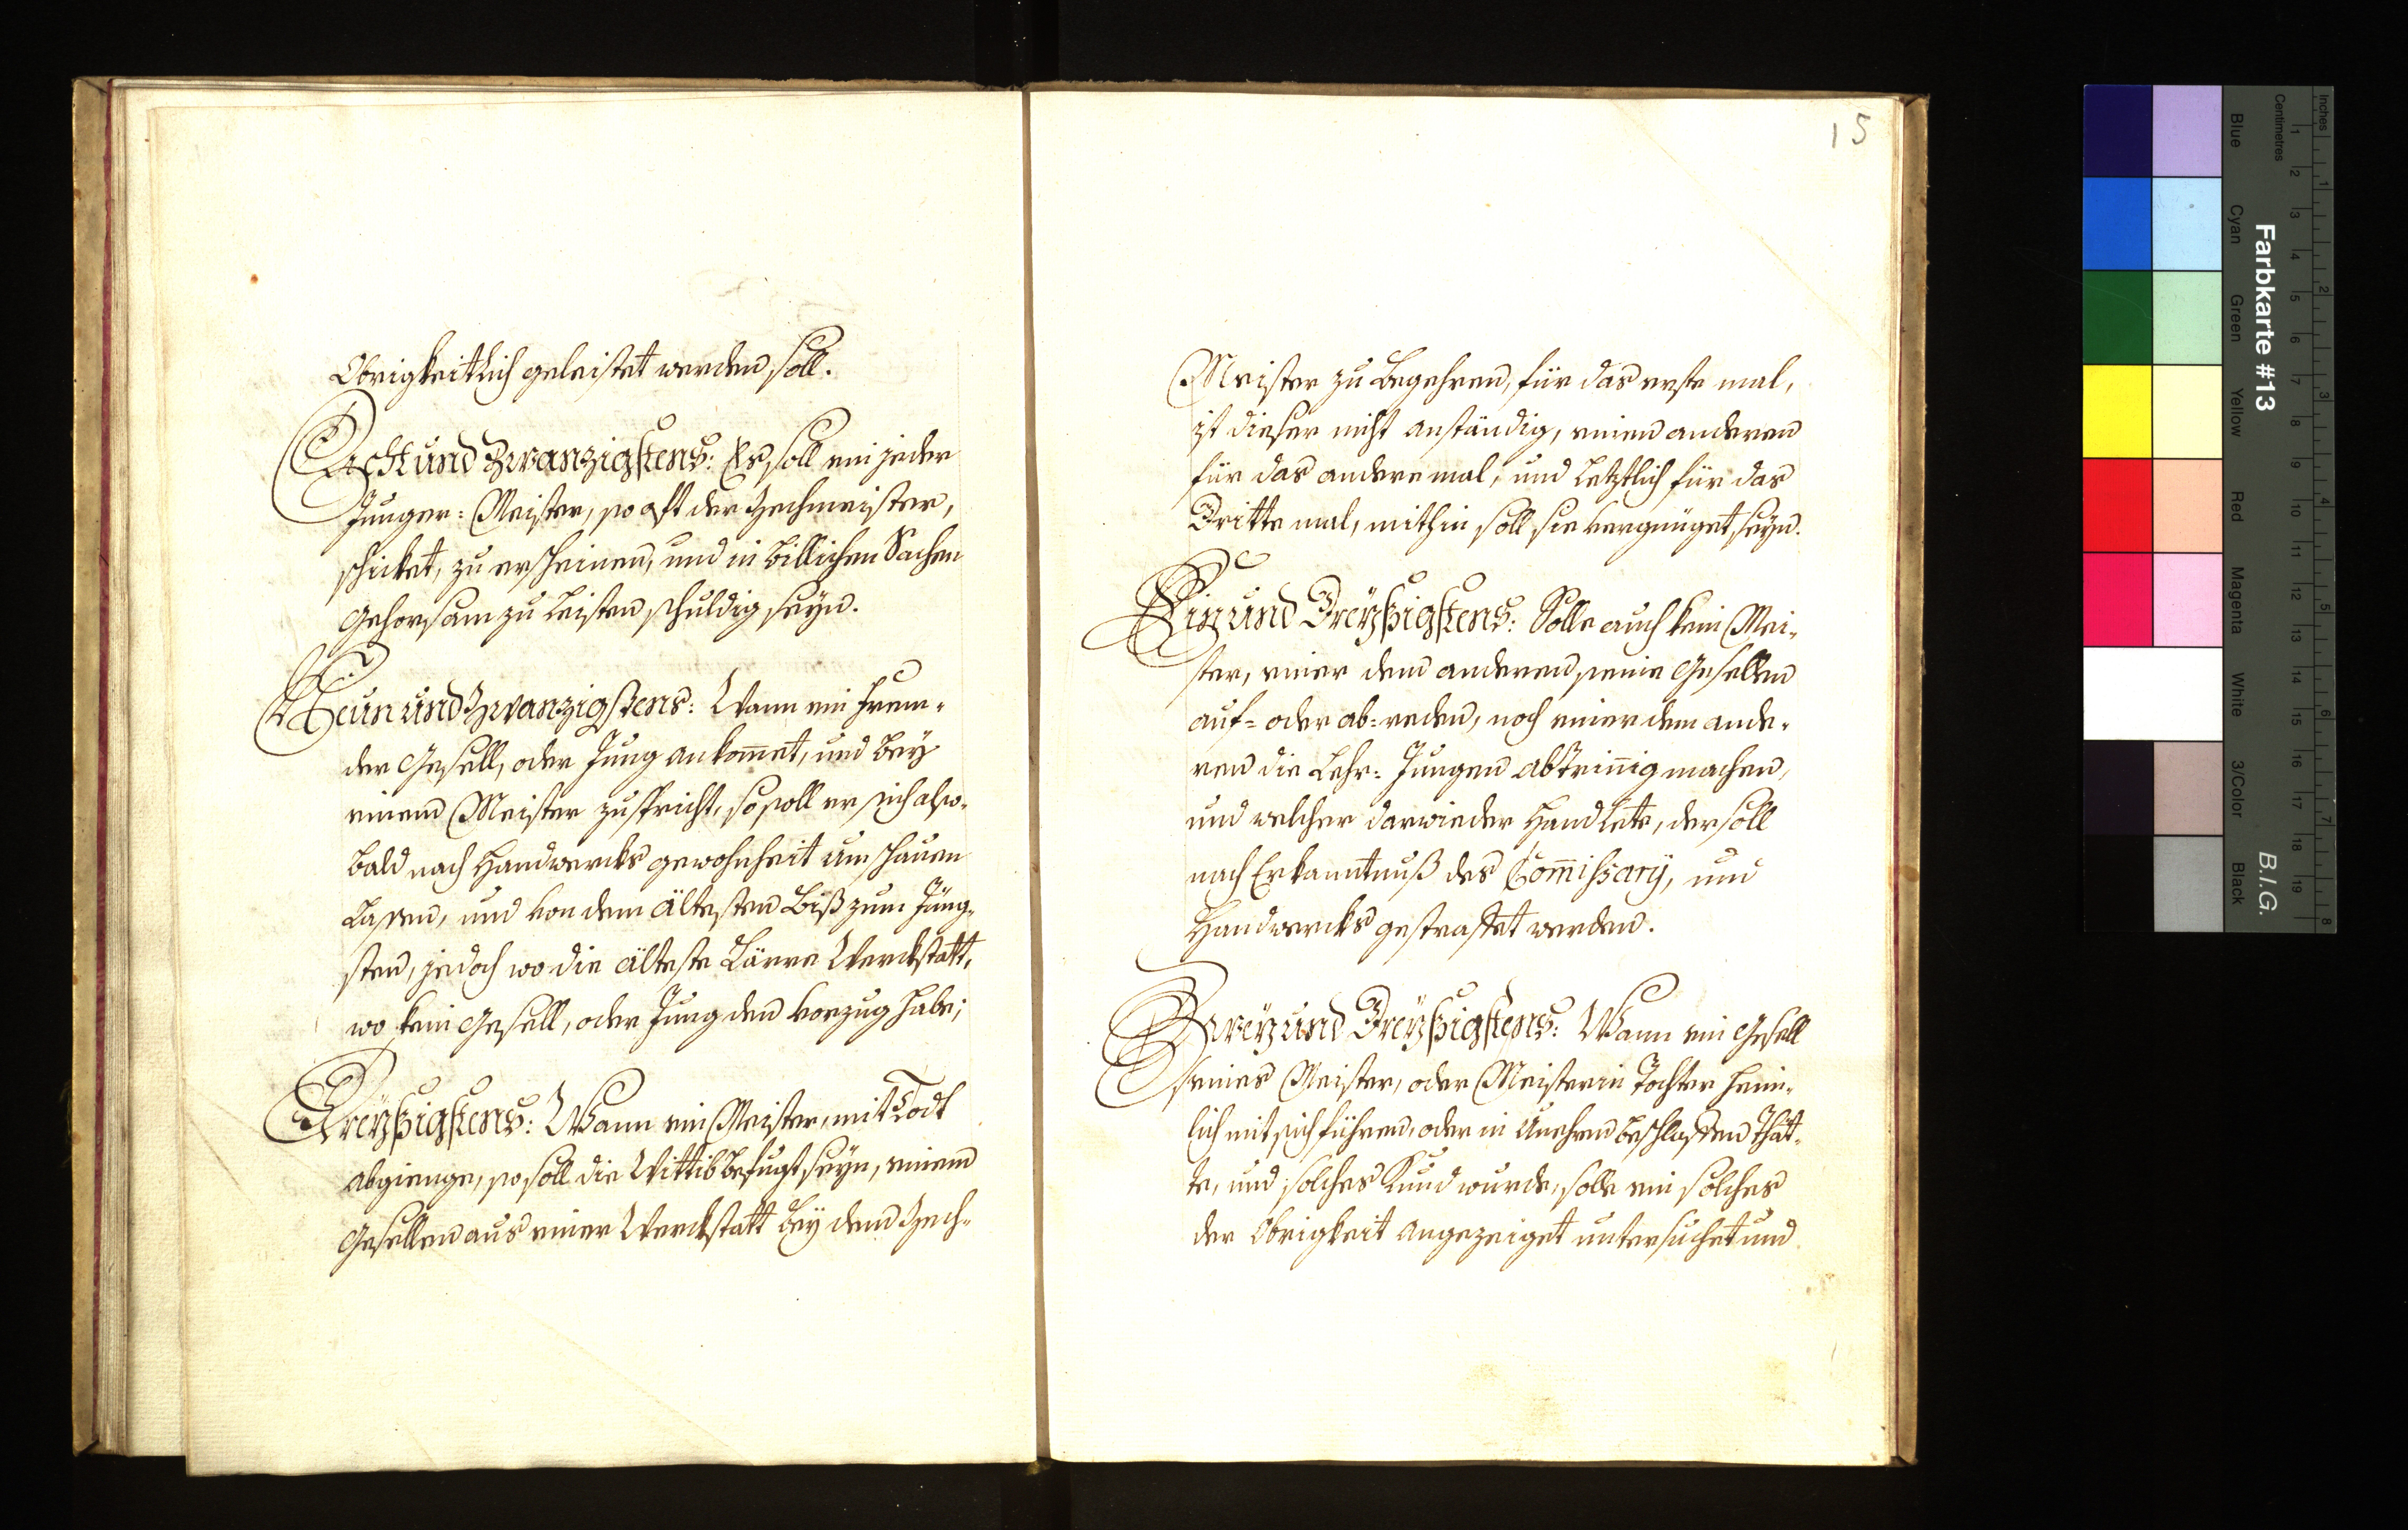 Obrigkeitlich geleistet werden soll.
Acht und Zwanzigstens: Es soll ein jeder
Junger: Meister, so oft der Zechmeister,
schicket, zu erscheinen, und in billichen Sachen
Gehorsam zu leisten schuldig seyn.
Neun und Zwanzigstens: Wann ein frem-
der Gesell, oder Jung ankom̄et, und bey
einem Meister zuspricht, so soll er sich also-
bald nach Handwercks gewohnheit umschauen
lassen, und von dem ältesten biß zum Jüng-
sten, jedoch wo die älteste Lärre Werckstatt,
wo kein Gesell, oder Jung den vorzug habe;
Dreyßigstens: Wann ein Meister, mit Todt
abgienge, so soll die Wittib befugt seyn, einem
Gesellen aus einer Werckstatt bey dem Zech-
15
Meister zu begehren, für das erste mal,
ist dieser nicht anständig, einen anderen
für das andere mal, und letztlich für das
Dritte mal, mithin soll sie vergnüget seyn.
Ein und Dreyßigstens: Solle auch kein Mei-
ster, einer dem anderen seine Gesellen
auf= oder ab=reden, noch einer dem ande-
ren die Lehr= Jungen abtrin̄ig machen,
und welcher darwieder Handlete, der soll
nach Erkanntnuß des Com̄issarÿ, und
Handwercks gestraffet werden.
Zwey und Dreyßigstens: Wann ein Gesell
seines Meister, oder Meisterin Tochter heim-
lich mit sich führen, oder in Unehren beschlaffen thät-
te, und solches Kund wurde, solle ein solches
der Obrigkeit angezeiget untersuchet und
Farbkarte #13
B.I.G.
Inches
Centimetres
1 2 3 4 5 6 7 8 9 10 11 12 13 14 15 16 17 18 19
1 2 3 4 5 6 7 8
Blue
Cyan
Green
Yellow
Red
Magenta
White
3/Color
Black